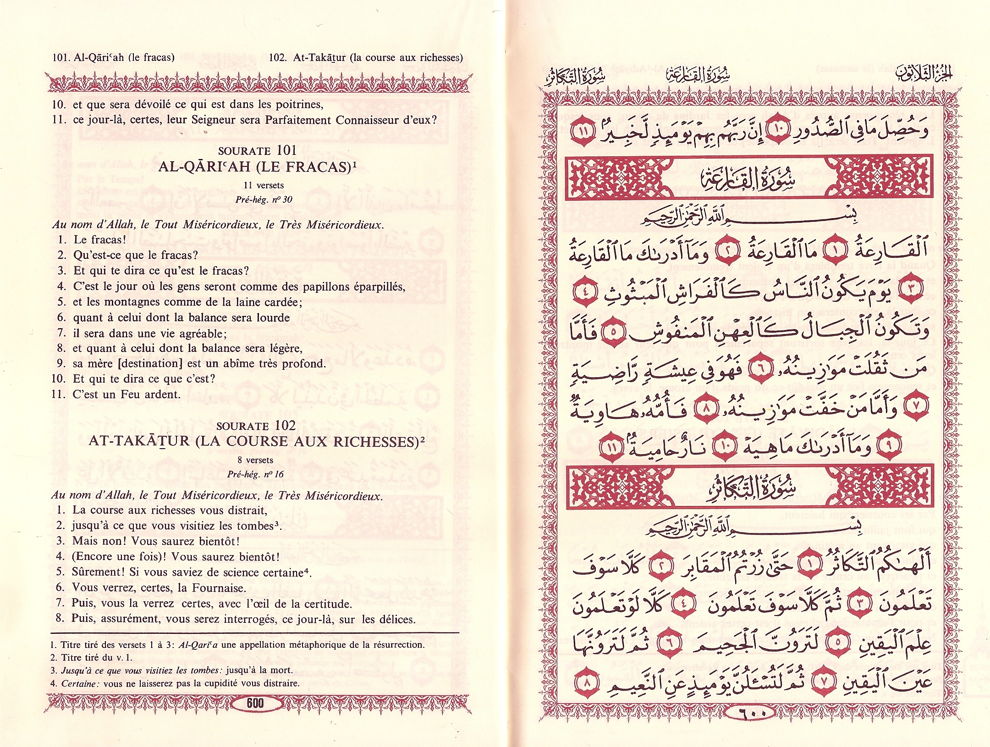 101. Al-Qāriʿah (le fracas) 102. At-Takāṯur (la course aux richesses)
10. et que sera dévoilé ce qui est dans les poitrines,
11. ce jour-là, certes, leur Seigneur sera Parfaitement Connaisseur d'eux?
SOURATE 101
AL-QĀRIʿAH (LE FRACAS)¹
11 versets
Pré-hég. nº 30
Au nom d'Allah, le Tout Miséricordieux, le Très Miséricordieux.
1. Le fracas!
2. Qu'est-ce que le fracas?
3. Et qui te dira ce qu'est le fracas?
4. C'est le jour où les gens seront comme des papillons éparpillés,
5. et les montagnes comme de la laine cardée;
6. quant à celui dont la balance sera lourde
7. il sera dans une vie agréable;
8. et quant à celui dont la balance sera légère,
9. sa mère [destination] est un abîme très profond.
10. Et qui te dira ce que c'est?
11. C'est un Feu ardent.
SOURATE 102
AT-TAKĀṮUR (LA COURSE AUX RICHESSES)²
8 versets
Pré-hég. nº 16
Au nom d'Allah, le Tout Miséricordieux, le Très Miséricordieux.
1. La course aux richesses vous distrait,
2. jusqu'à ce que vous visitiez les tombes³.
3. Mais non! Vous saurez bientôt!
4. (Encore une fois)! Vous saurez bientôt!
5. Sûrement! Si vous saviez de science certaine⁴.
6. Vous verrez, certes, la Fournaise.
7. Puis, vous la verrez certes, avec l'œil de la certitude.
8. Puis, assurément, vous serez interrogés, ce jour-là, sur les délices.
1. Titre tiré des versets 1 à 3: Al-Qariʿa une appellation métaphorique de la résurrection.
2. Titre tiré du v. 1.
3. Jusqu'à ce que vous visitiez les tombes: jusqu'à la mort.
4. Certaine: vous ne laisserez pas la cupidité vous distraire.
600
الجزء الثلاثون سورة القارعة سورة التكاثر
وَحُصِّلَ مَا فِي ٱلصُّدُورِ ١٠ إِنَّ رَبَّهُم بِهِمْ يَوْمَئِذٍ لَّخَبِيرٌۢ ١١
سُورَةُ القَارِعَةِ
بِسْمِ ٱللَّهِ ٱلرَّحْمَٰنِ ٱلرَّحِيمِ
ٱلْقَارِعَةُ ١ مَا ٱلْقَارِعَةُ ٢ وَمَآ أَدْرَىٰكَ مَا ٱلْقَارِعَةُ
٣ يَوْمَ يَكُونُ ٱلنَّاسُ كَٱلْفَرَاشِ ٱلْمَبْثُوثِ ٤
وَتَكُونُ ٱلْجِبَالُ كَٱلْعِهْنِ ٱلْمَنفُوشِ ٥ فَأَمَّا
مَن ثَقُلَتْ مَوَٰزِينُهُۥ ٦ فَهُوَ فِي عِيشَةٍ رَّاضِيَةٍ
٧ وَأَمَّا مَنْ خَفَّتْ مَوَٰزِينُهُۥ ٨ فَأُمُّهُۥ هَاوِيَةٌ
٩ وَمَآ أَدْرَىٰكَ مَا هِيَهْ ١٠ نَارٌ حَامِيَةٌۢ ١١
سُورَةُ التَّكَاثُرِ
بِسْمِ ٱللَّهِ ٱلرَّحْمَٰنِ ٱلرَّحِيمِ
أَلْهَىٰكُمُ ٱلتَّكَاثُرُ ١ حَتَّىٰ زُرْتُمُ ٱلْمَقَابِرَ ٢ كَلَّا سَوْفَ
تَعْلَمُونَ ٣ ثُمَّ كَلَّا سَوْفَ تَعْلَمُونَ ٤ كَلَّا لَوْ تَعْلَمُونَ
عِلْمَ ٱلْيَقِينِ ٥ لَتَرَوُنَّ ٱلْجَحِيمَ ٦ ثُمَّ لَتَرَوُنَّهَا
عَيْنَ ٱلْيَقِينِ ٧ ثُمَّ لَتُسْـَٔلُنَّ يَوْمَئِذٍ عَنِ ٱلنَّعِيمِ ٨
٦٠٠